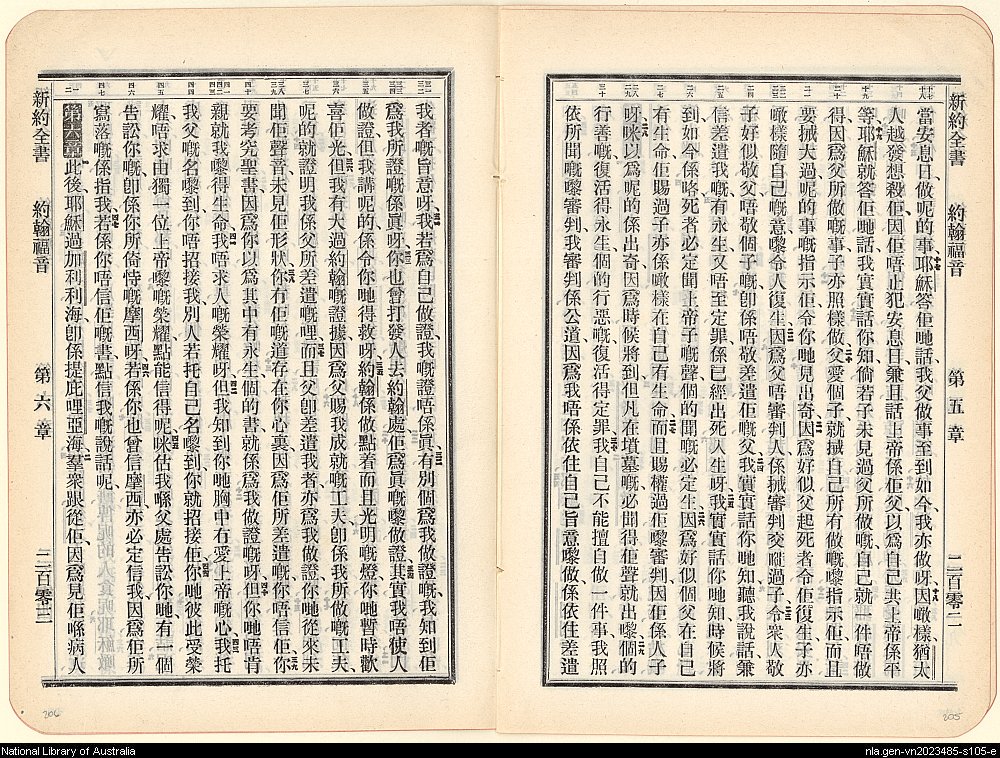 新約全書 約翰福音 第五章 二百零二
當安息日做呢的事、耶穌答佢哋話、我父做事至到如今、我亦做呀、因噉樣猶太
人越發想殺佢、因佢唔止犯安息日、兼且話上帝係佢父、以爲自己共上帝係平
等、耶穌就答佢哋話、我實實話你知、倘若子未見過父所做嘅、自己就一件唔做
得、因爲父所做嘅事、子亦照樣做、父愛個子、就搣自己所有做嘅嚟指示佢、而且
要搣大過呢的事嘅指示佢、令你哋見出奇、因爲好似父起死者、令佢復生、子亦
噉樣隨自己嘅意、嚟令人復生、因爲父唔審判人、係搣審判交過子、令衆人敬
子好似敬父、唔敬個子嘅、卽係唔敬差遣佢嘅父、我實實話你哋知、聽我說話、兼
信差遣我嘅、有永生、又唔至定罪、係已經出死入生呀、我實實話你哋知、時候將
到、如今係咯、死者必定聞上帝子嘅聲、個的聞嘅必定生、因爲好似個父在自己
有生命、佢賜過子、亦係噉樣在自己有生命、而且賜權過佢嚟審判、因佢係人子
呀、咪以爲呢的係出奇、因爲時候將到、但凡在墳墓嘅、必聞得佢聲就出嚟、個的
行善嘅復活得永生、個的行惡嘅復活得定罪、我自己不能擅自做一件事、我照
依所聞嘅嚟審判、我審判係公道、因爲我唔係依住自己旨意嚟做、係依住差遣
205
我者嘅旨意呀、我若爲自己做證、我嘅證唔係眞、有別個爲我做證嘅、我知到佢
爲我所證嘅係眞呀、你也曾打發人去約翰處、佢爲眞嘅嚟做證、其實我唔使人
做證、但我講呢的係令你哋得救呀、約翰係做點着而且光明嘅燈、你哋暫時歡
喜佢光、但我有大過約翰嘅證據、因爲父賜我成就嘅工夫、卽係我所做嘅工夫、
呢的就證明我係父所差遣嘅哩、而且父卽差遣我者、亦爲我做證、你哋從來未
聞佢聲音、未見佢形狀、你冇佢嘅道存在你心裏、因爲佢所差遣嘅你唔信佢、你
要考究聖書、因爲你以爲其中有永生、個的書就係爲我做證嘅呀、但你哋唔肯
親就我嚟得生命、我唔求人嘅榮耀呀、但我知到你哋胸中冇愛上帝嘅心、我托
我父嘅名嚟到、你唔招接我、別人若托自己名嚟到、你就招接佢、你哋彼此受榮
耀、唔求由獨一位上帝嚟嘅榮耀、點能信得呢、咪估我喺父處告訟你哋、有一個
告訟你嘅、卽係你所倚恃嘅摩西呀、若係你也曾信摩西、亦必定信我、因爲佢所
寫落嘅係指我、若係你唔信佢嘅書、點信我嘅說話呢、
第六章 此後耶穌過加利利海、卽係提庇哩亞海、羣衆跟從佢、因爲見佢喺病人
新約全書 約翰福音 第六章 二百零三
206
National Library of Australia
nla.gen-vn2023485-s105-e